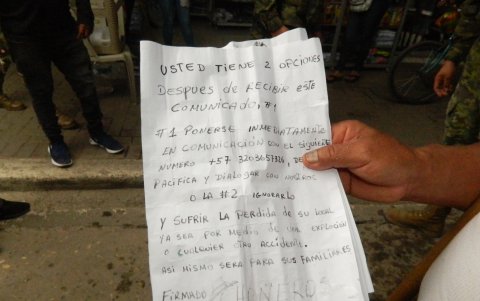 USTED TIENE 2 OPCIONES
DESPUES DE RECIBIR ESTE
COMUNICADO,
#1 PONERSE INMEDIATAMENTE
EN COMUNICACIÓN CON EL SIGUIENTE
NUMERO +57
PACIFICA Y DIALOGAR CON NOSOTROS
O LA #2 IGNORARLO
Y SUFRIR LA PERDIDA DE SU LOCAL
YA SEA POR MEDIO DE UNA EXPLOCIÓN
O CUALQUIER OTRO ACCIDENTE.
ASI MISMO SERA PARA SUS FAMILIARES
FIRMADO